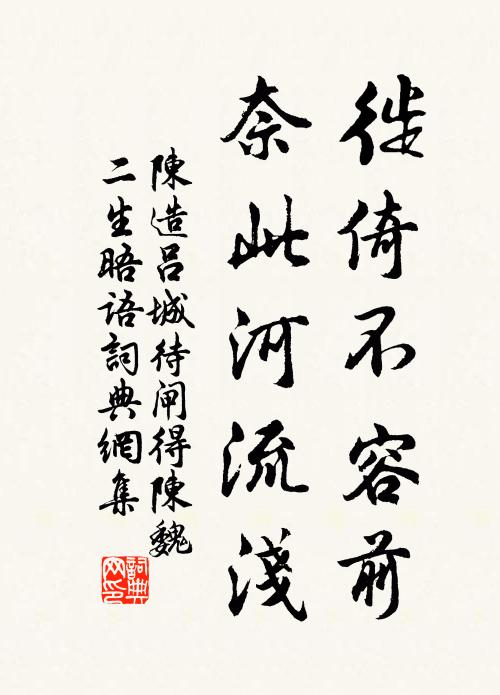 徙倚不容前
奈此河流淺
陳造呂城待閘得陳魏
二生晤語詞典網集
詞典
网印